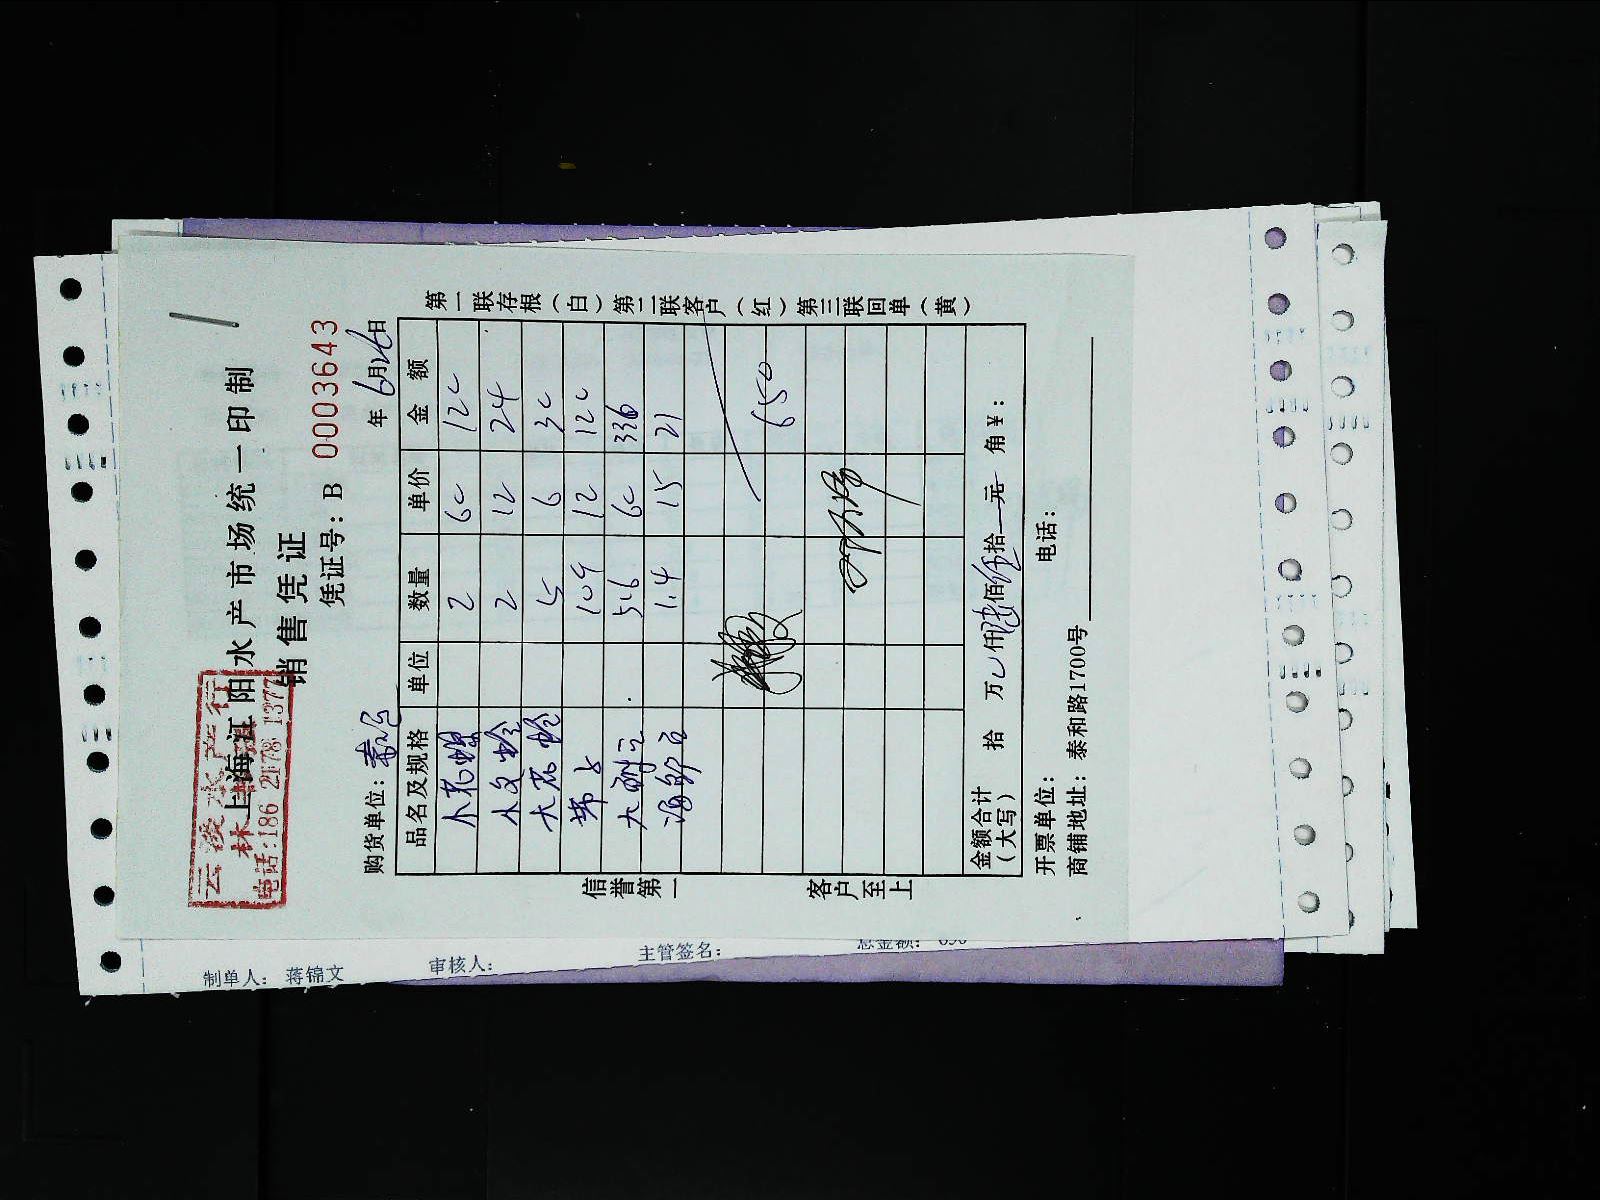 上海江阳水产市场统一印制
销售凭证
云凌水产行
电话:186 2178 1377
凭证号: B 0003643
购货单位:
年 6月26日
品名及规格 单位 数量 单价 金额
2 60 120
2 12 24
大花蛤 5 6 30
带子 12 120
大 5.6 60 336
1.4 15 21
650
金额合计
(大写)
拾 万 仟陆佰伍拾元 角 ¥:
开票单位: 电话:
商铺地址: 泰和路1700号
第一联存根(白)第二联客户(红)第三联回单(黄)
信誉第一 客户至上
制单人: 蒋锦文 审核人: 主管签名: 总金额: